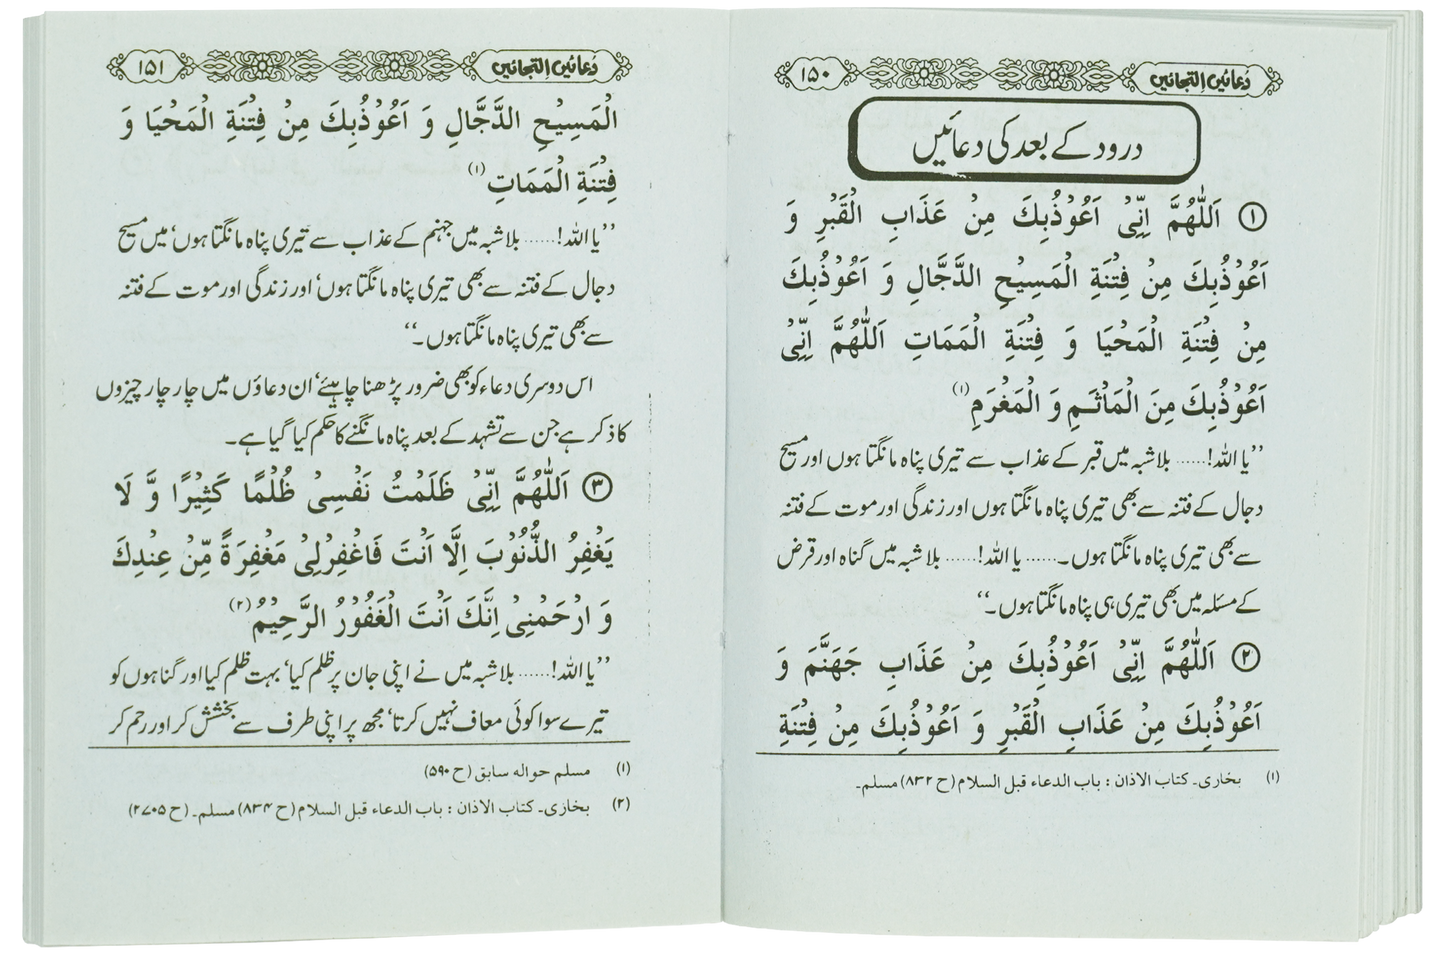 دعائیں التجائیں
۱۵۰
درود کے بعد کی دعائیں
① اَللّٰهُمَّ اِنِّیْ اَعُوْذُبِكَ مِنْ عَذَابِ الْقَبْرِ وَ
اَعُوْذُبِكَ مِنْ فِتْنَةِ الْمَسِيْحِ الدَّجَّالِ وَ اَعُوْذُبِكَ
مِنْ فِتْنَةِ الْمَحْيَا وَ فِتْنَةِ الْمَمَاتِ اَللّٰهُمَّ اِنِّیْ
اَعُوْذُبِكَ مِنَ الْمَاْثَمِ وَ الْمَغْرَمِ (۱)
’’یا اللہ!...... بلاشبہ میں قبر کے عذاب سے تیری پناہ مانگتا ہوں اور مسیح
دجال کے فتنہ سے بھی تیری پناہ مانگتا ہوں اور زندگی اور موت کے فتنہ
سے بھی تیری پناہ مانگتا ہوں۔...... یا اللہ!...... بلاشبہ میں گناہ اور قرض
کے مسئلہ میں بھی تیری ہی پناہ مانگتا ہوں۔‘‘
② اَللّٰهُمَّ اِنِّیْ اَعُوْذُبِكَ مِنْ عَذَابِ جَهَنَّمَ وَ
اَعُوْذُبِكَ مِنْ عَذَابِ الْقَبْرِ وَ اَعُوْذُبِكَ مِنْ فِتْنَةِ
(۱) بخاری۔ کتاب الاذان : باب الدعاء قبل السلام (ح ۸۳۲) مسلم۔
دعائیں التجائیں
۱۵۱
الْمَسِيْحِ الدَّجَّالِ وَ اَعُوْذُبِكَ مِنْ فِتْنَةِ الْمَحْيَا وَ
فِتْنَةِ الْمَمَاتِ (۱)
’’یا اللہ!...... بلاشبہ میں جہنم کے عذاب سے تیری پناہ مانگتا ہوں‘ میں مسیح
دجال کے فتنہ سے بھی تیری پناہ مانگتا ہوں‘ اور زندگی اور موت کے فتنہ
سے بھی تیری پناہ مانگتا ہوں۔‘‘
اس دوسری دعاء کو بھی ضرور پڑھنا چاہیئے‘ ان دعاؤں میں چار چار چیزوں
کا ذکر ہے جن سے تشہد کے بعد پناہ مانگنے کا حکم کیا گیا ہے۔
③ اَللّٰهُمَّ اِنِّیْ ظَلَمْتُ نَفْسِیْ ظُلْمًا كَثِيْرًا وَّ لَا
يَغْفِرُ الذُّنُوْبَ اِلَّا اَنْتَ فَاغْفِرْلِیْ مَغْفِرَةً مِّنْ عِنْدِكَ
وَ ارْحَمْنِیْ اِنَّكَ اَنْتَ الْغَفُوْرُ الرَّحِيْمُ (۲)
’’یا اللہ!...... بلاشبہ میں نے اپنی جان پر ظلم کیا‘ بہت ظلم کیا اور گناہوں کو
تیرے سوا کوئی معاف نہیں کرتا‘ مجھ پر اپنی طرف سے بخشش کر اور رحم کر
(۱) مسلم حوالہ سابق (ح ۵۹۰)
(۲) بخاری۔ کتاب الاذان : باب الدعاء قبل السلام (ح ۸۳۴) مسلم۔ (ح ۲۷۰۵)